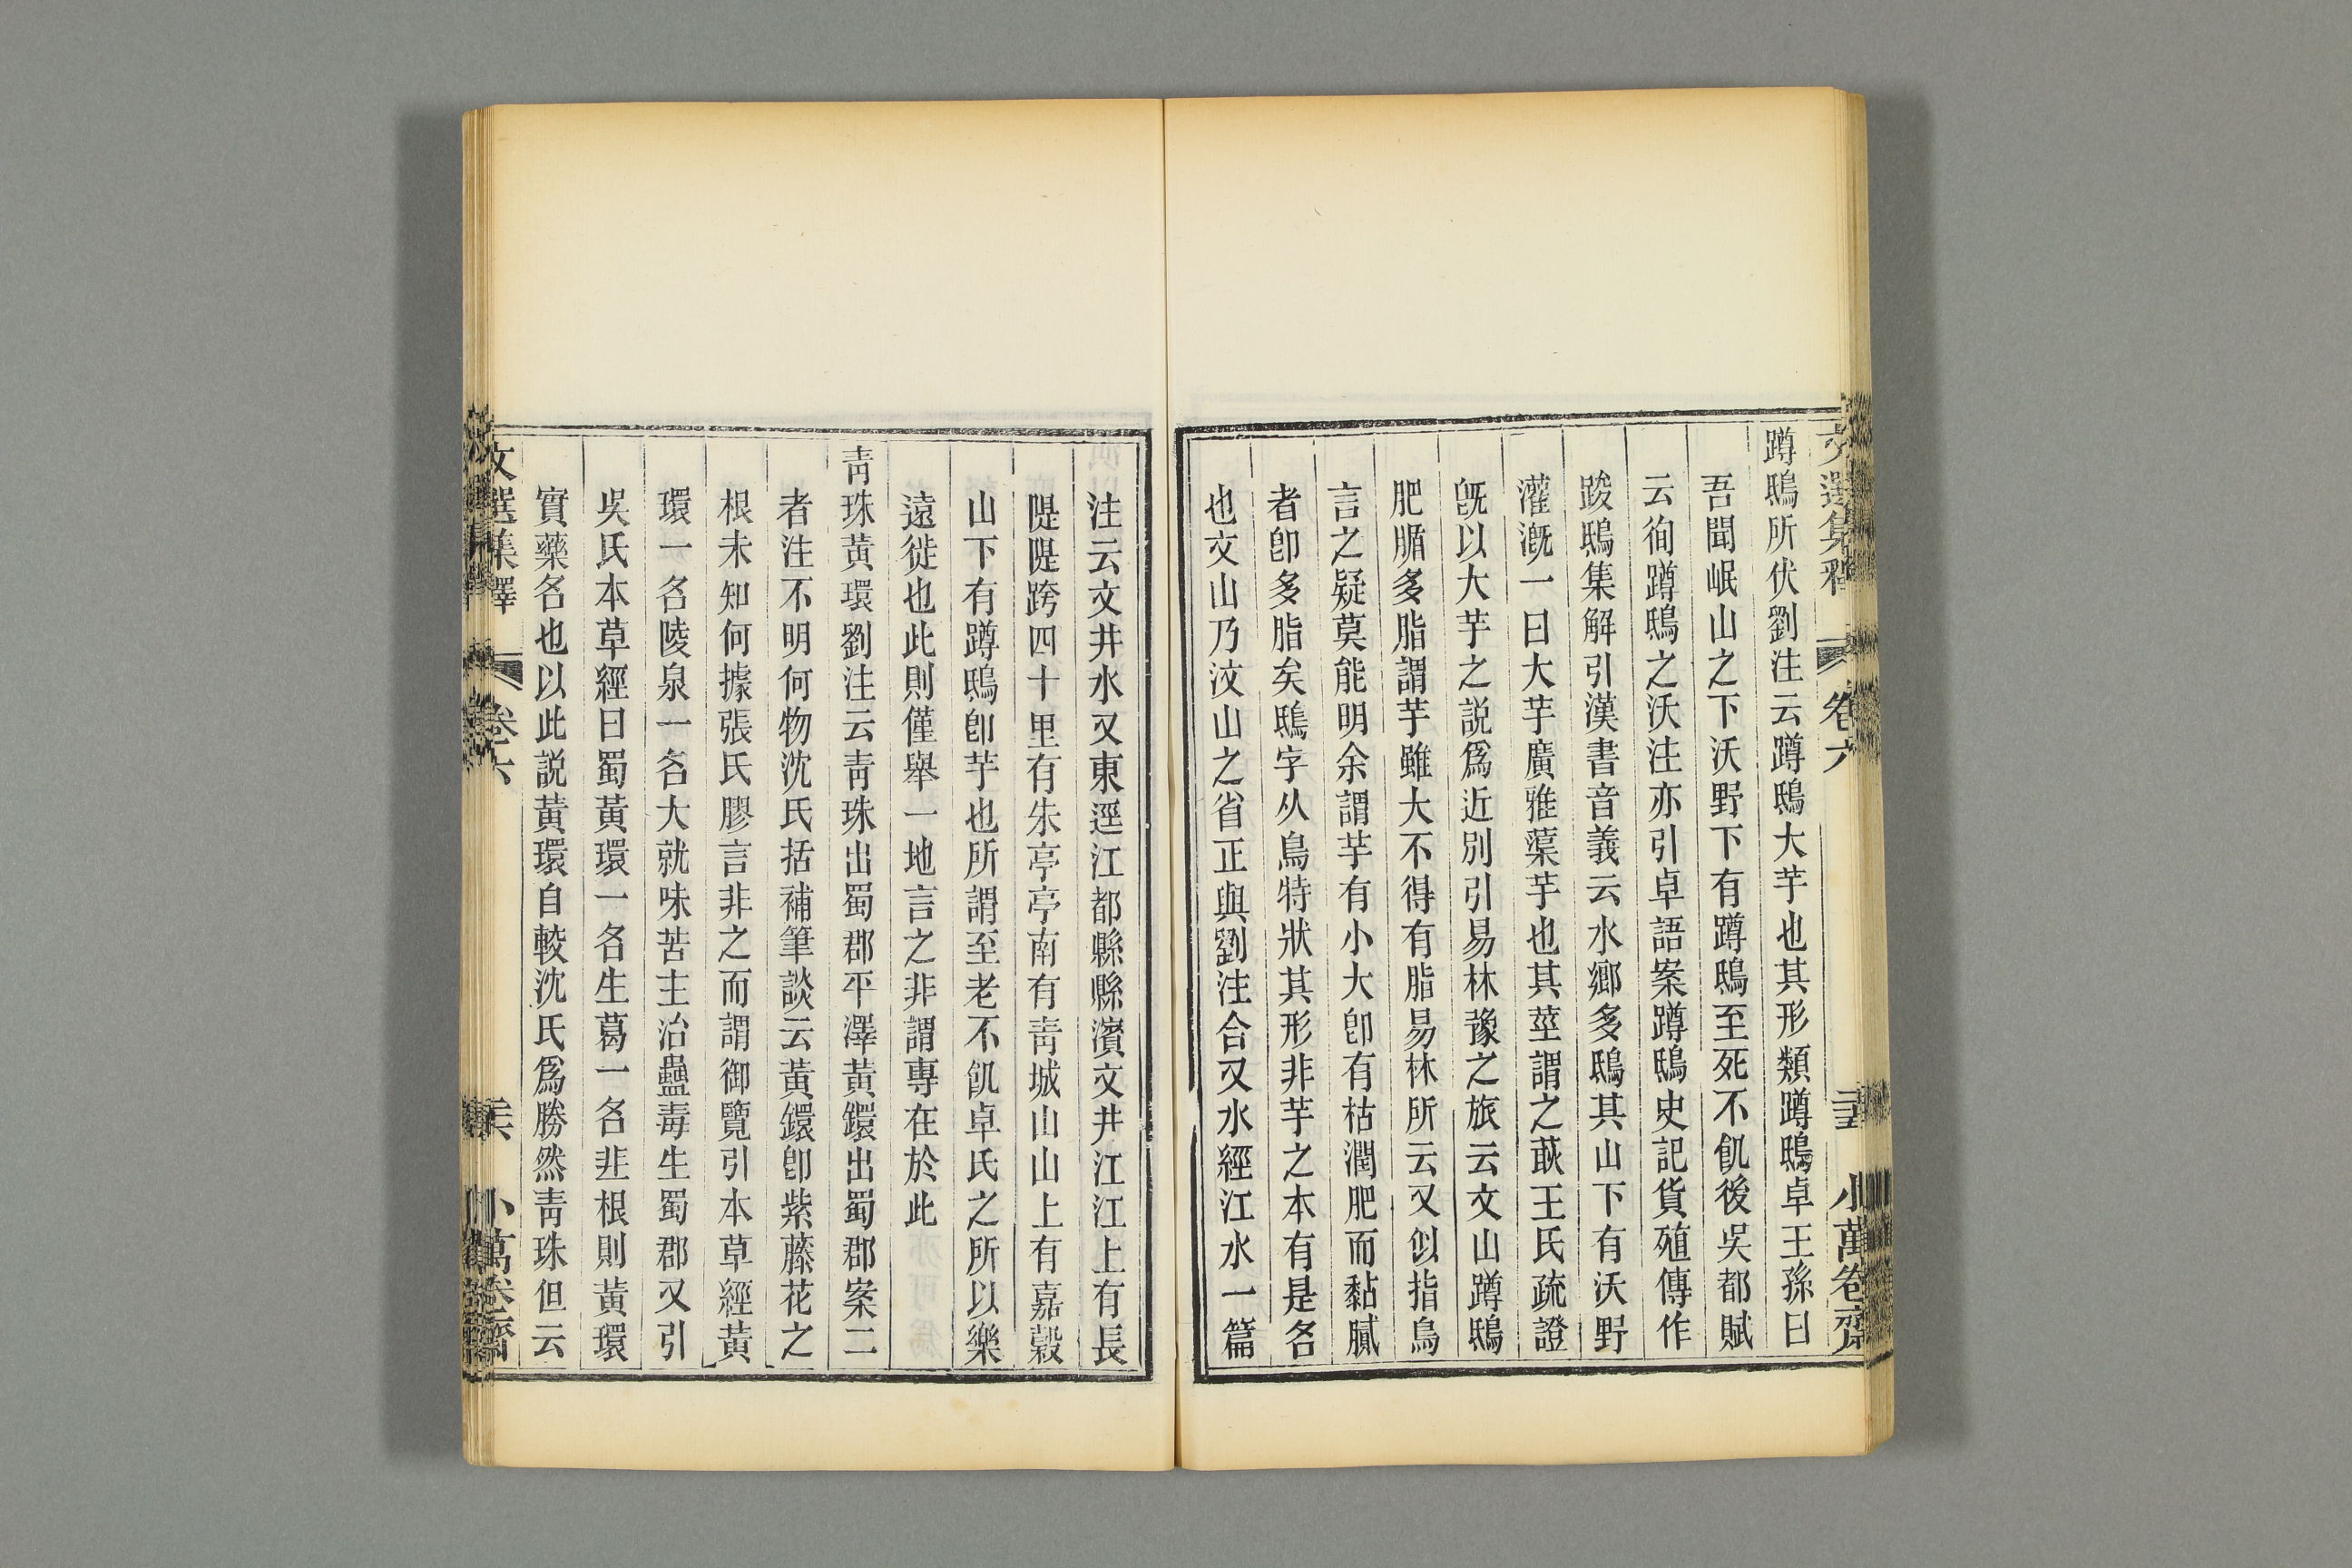 文選集釋 卷六 二十五 小萬卷齋
蹲鴟所伏劉注云蹲鴟大芋也其形類蹲鴟卓王孫曰
吾聞岷山之下沃野下有蹲鴟至死不飢後吳都賦
云徇蹲鴟之沃注亦引卓語案蹲鴟史記貨殖傳作
踆鴟集解引漢書音義云水鄉多鴟其山下有沃野
灌溉一曰大芋廣雅蕖芋也其莖謂之䔈王氏疏證
旣以大芋之説爲近別引易林豫之旅云文山蹲鴟
肥腯多脂謂芋雖大不得有脂易林所云又似指鳥
言之疑莫能明余謂芋有小大卽有枯潤肥而黏膩
者卽多脂矣鴟字从鳥特狀其形非芋之本有是名
也文山乃汶山之省正與劉注合又水經江水一篇
注云文井水又東逕江都縣縣濱文井江江上有長
隄隄跨四十里有朱亭亭南有靑城山山上有嘉穀
山下有蹲鴟卽芋也所謂至老不飢卓氏之所以樂
遠徙也此則僅舉一地言之非謂專在於此
靑珠黃環劉注云靑珠出蜀郡平澤黃鐶出蜀郡案二
者注不明何物沈氏括補筆談云黃鐶卽紫藤花之
根未知何據張氏膠言非之而謂御覽引本草經黃
環一名陵泉一名大就味苦主治蠱毒生蜀郡又引
吳氏本草經曰蜀黃環一名生葛一名韭根則黃環
實藥名也以此説黃環自較沈氏爲勝然靑珠但云
文選集釋 卷六 小萬卷齋